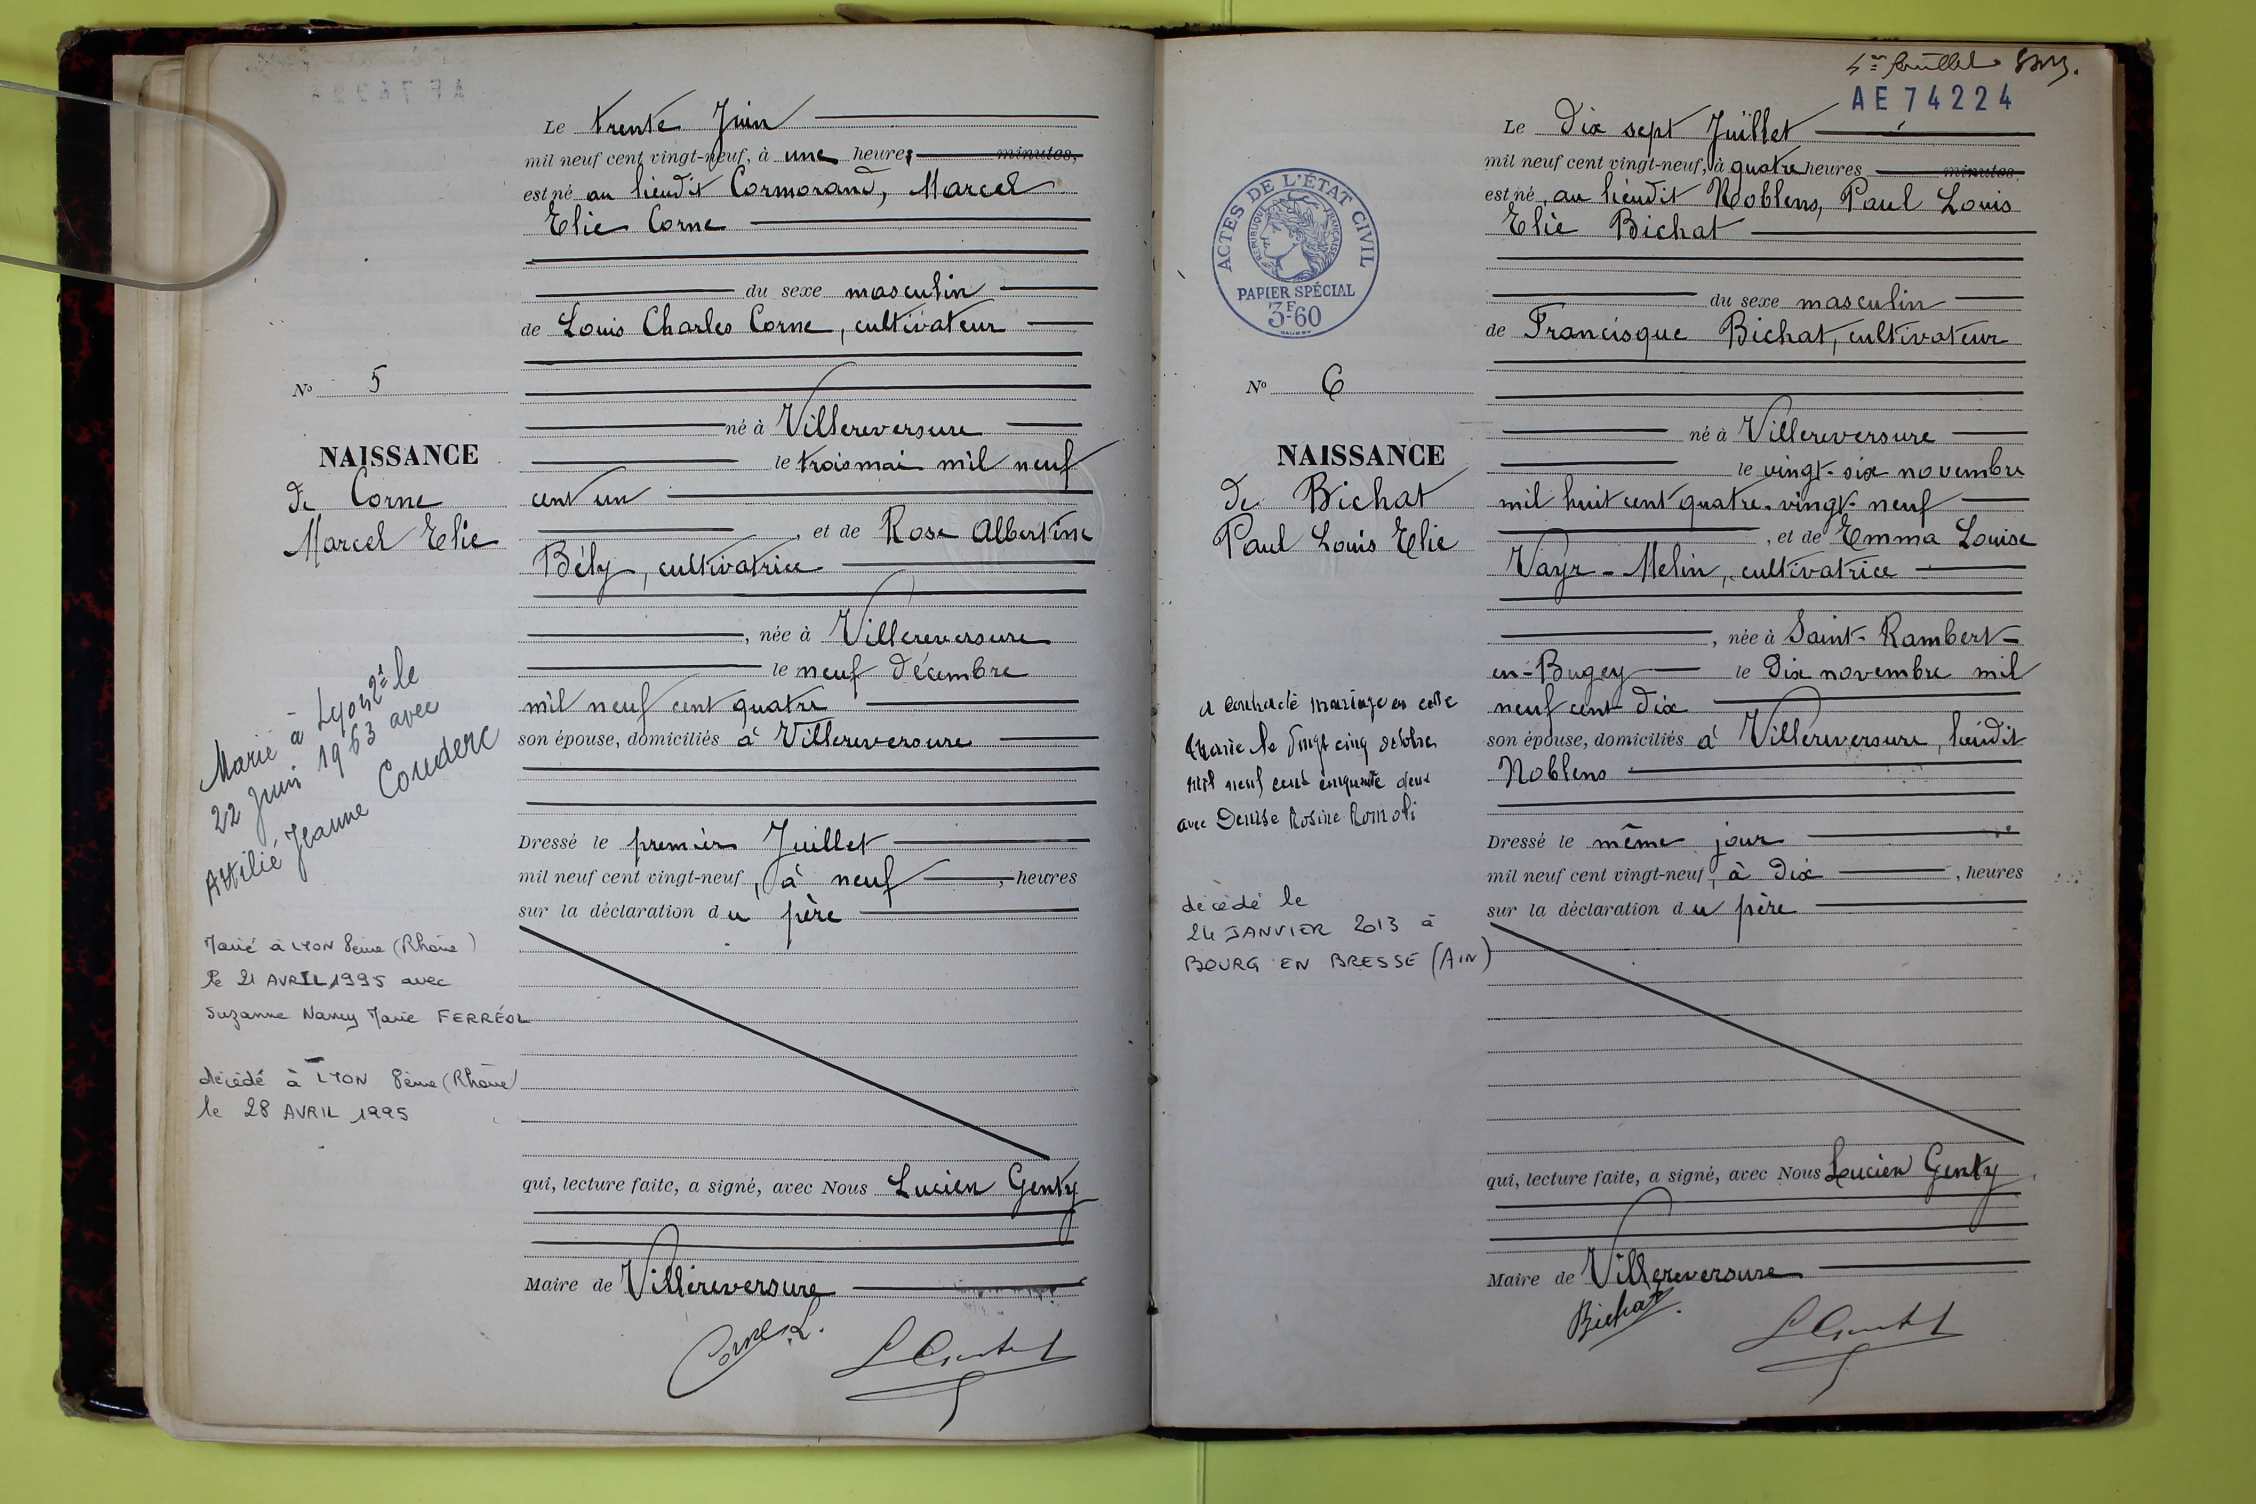 Le trente Juin
mil neuf cent vingt-neuf, à une heure, minutes,
est né au lieudit Cormorand, Marcel
Elie Corne
du sexe masculin
de Louis Charles Corne, cultivateur
né à Villereversure
le trois mai mil neuf
cent un
, et de Rose Albertine
Bély, cultivatrice
, née à Villereversure
le neuf Décembre
mil neuf cent quatre
son épouse, domiciliés à Villereversure
Dressé le premier Juillet
mil neuf cent vingt-neuf, à neuf, heures
sur la déclaration du père
qui, lecture faite, a signé, avec Nous Lucien Genty
Maire de Villereversure
Corne L.
N° 5
NAISSANCE
de Corne
Marcel Elie
Marié à Lyon 2e le
22 Juin 1963 avec
Attilié Jeanne Couderc
Marié à LYON 8ème (Rhône)
le 21 AVRIL 1995 avec
Suzanne Nancy Marie FERRÉOL
décédé à LYON 8ème (Rhône)
le 28 AVRIL 1995
feuillet
AE 74224
Le Dix sept Juillet
mil neuf cent vingt-neuf, à quatre heures minutes
est né, au lieudit Noblens, Paul Louis
Elie Bichat
du sexe masculin
de Francisque Bichat, cultivateur
né à Villereversure
le vingt-six novembre
mil huit cent quatre-vingt-neuf
, et de Emma Louise
Vayr-Melin, cultivatrice
, née à Saint-Rambert-
en-Bugey le Dix novembre mil
neuf cent Dix
son épouse, domiciliés à Villereversure, lieudit
Noblens
Dressé le même jour
mil neuf cent vingt-neuf, à Dix, heures
sur la déclaration du père
qui, lecture faite, a signé, avec Nous Lucien Genty
Maire de Villereversure
Bichat
ACTES DE L'ÉTAT CIVIL
RÉPUBLIQUE FRANÇAISE
PAPIER SPÉCIAL
3F60
N° 6
NAISSANCE
de Bichat
Paul Louis Elie
a contracté mariage en cette
Mairie le Vingt cinq octobre
mil neuf cent cinquante deux
avec Denise Rosine Romoli
décédé le
24 JANVIER 2013 à
BOURG EN BRESSE (AIN)